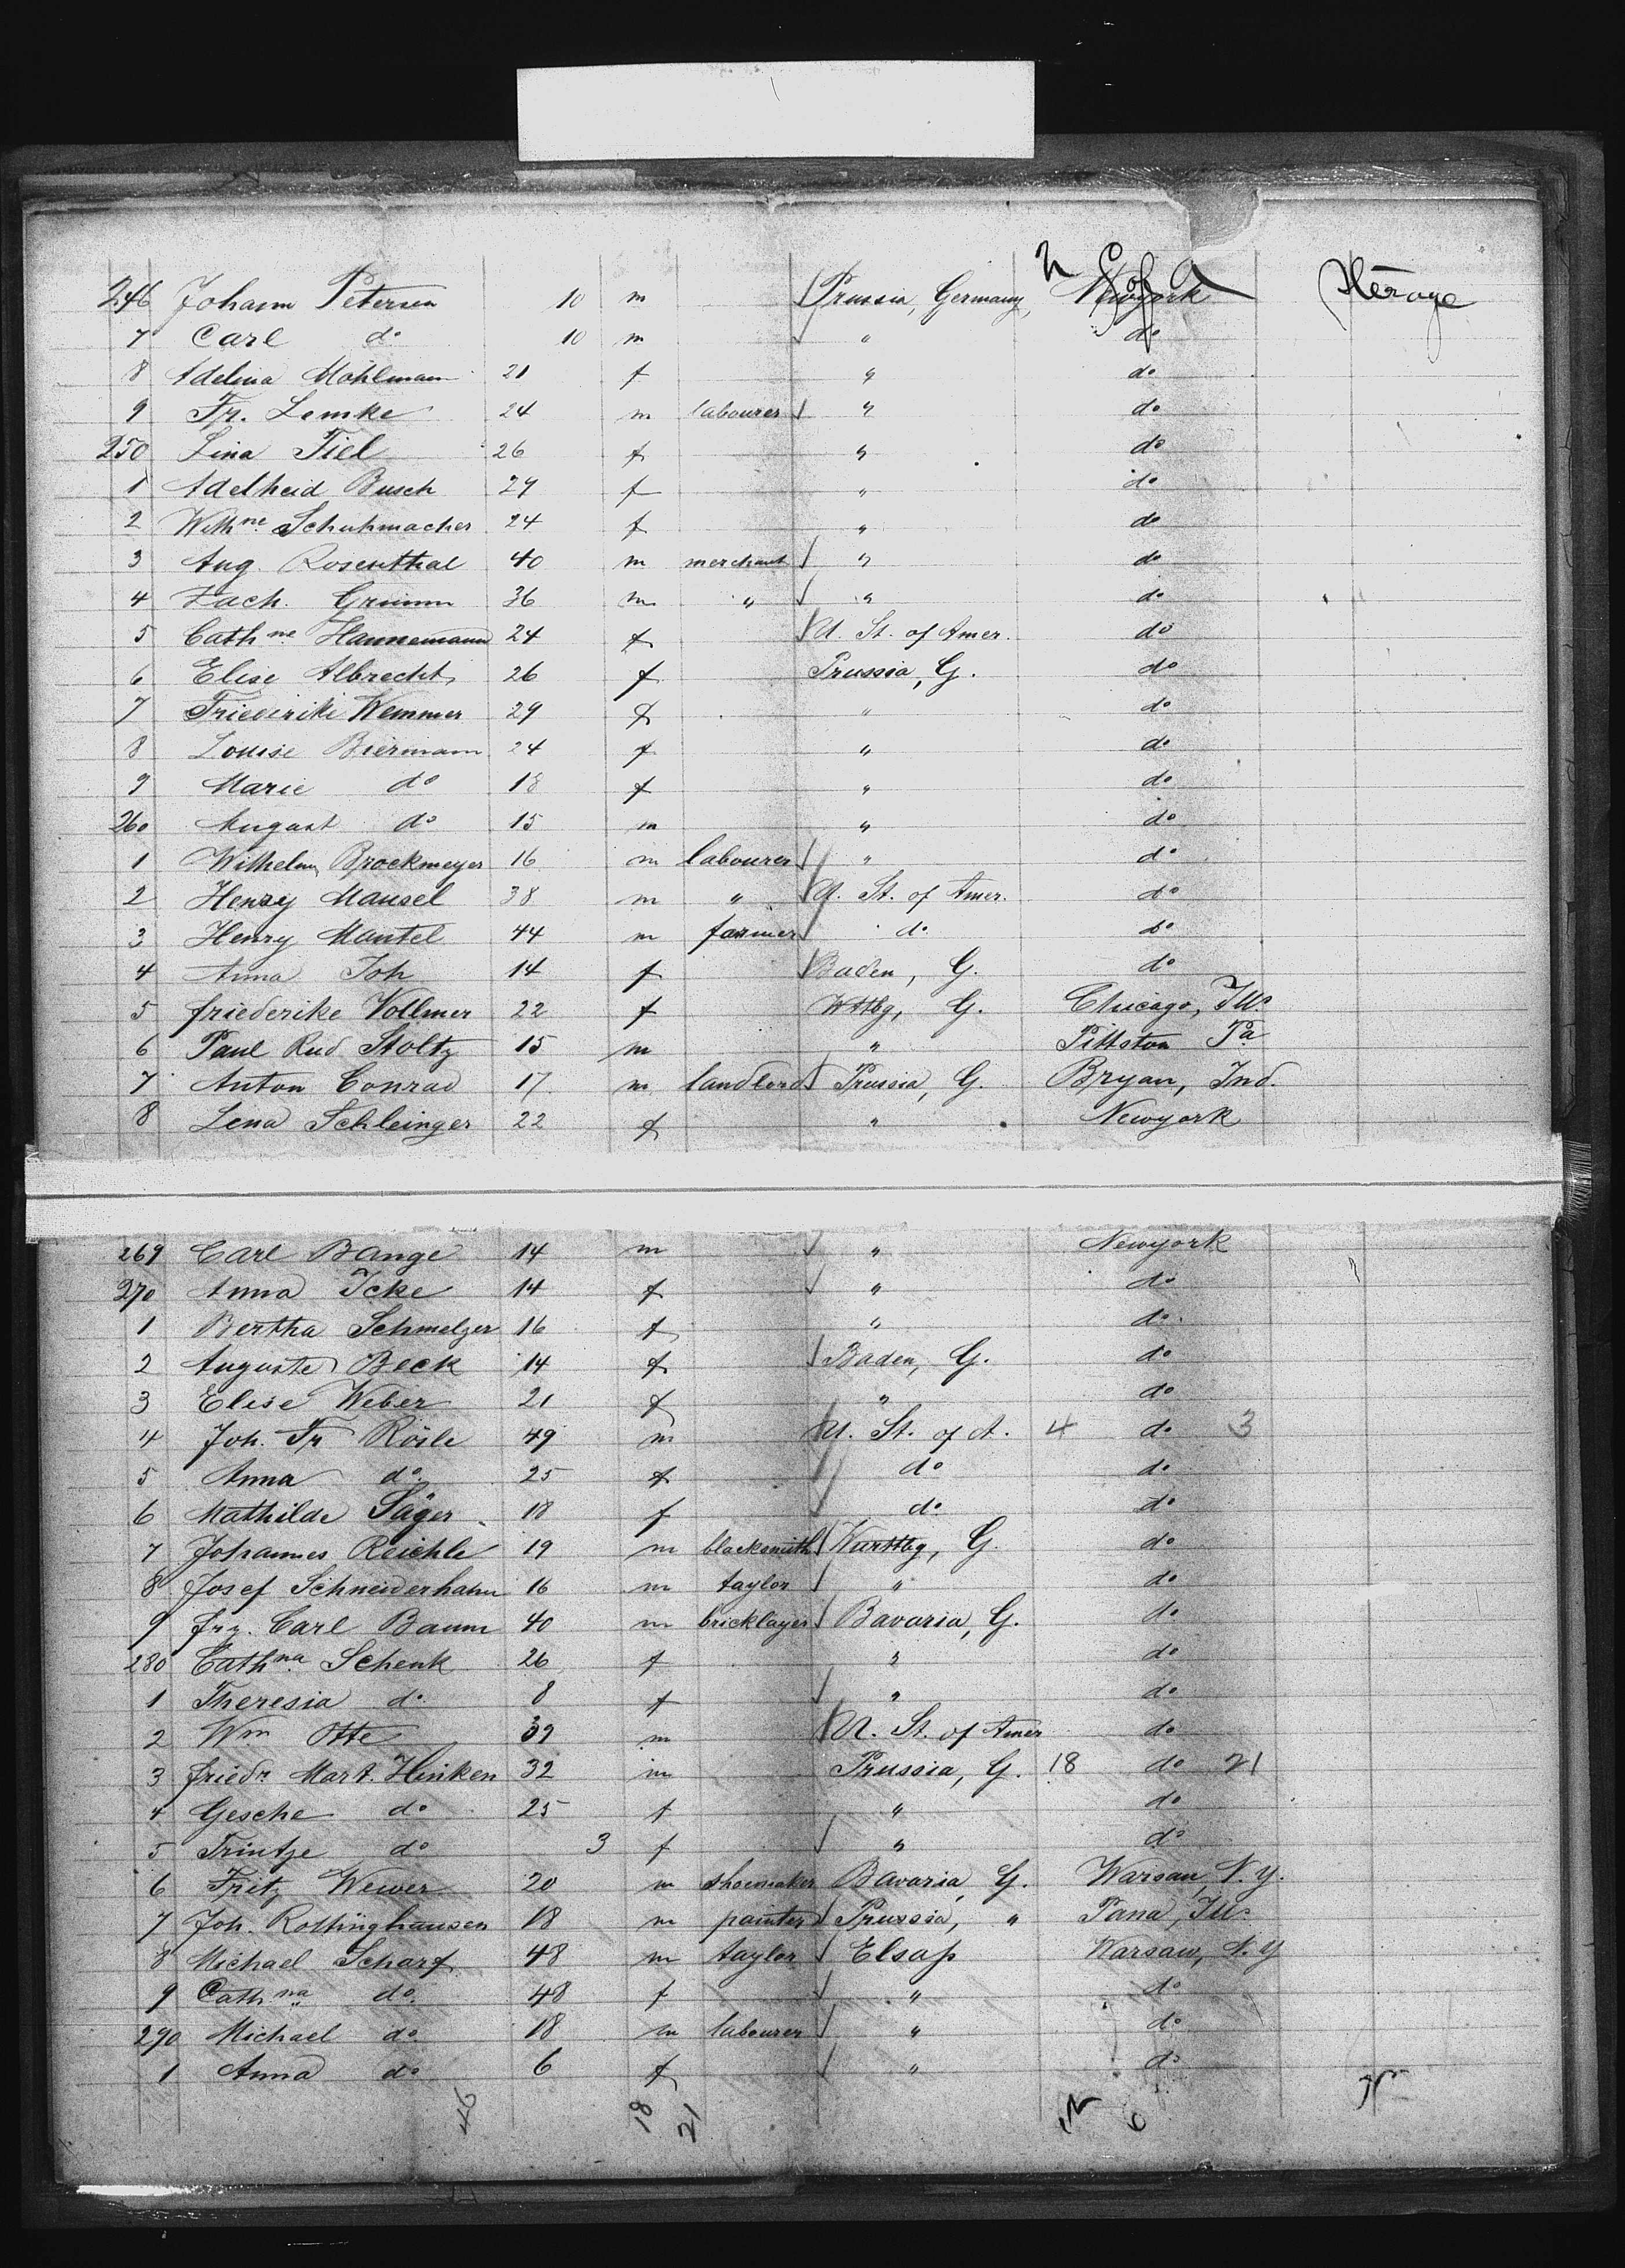 246 Johann Petersen 10 m Prussia, Germany, Newyork Sterage
7 Carl do 10 m " do
8 Adelina Möhlmann 21 f " do
9 Fr. Lemke 24 m labourer " do
250 Lina Fiel 26 f " do
1 Adelheid Busch 29 f " do
2 Wilhne Schuhmacher 24 f " do
3 Aug. Rosenthal 40 m merchant " do
4 Zach. Grimm 36 m " " do
5 Cathne Hannemann 24 f U. St. of Amer. do
6 Elise Albrecht 26 f Prussia, G. do
7 Friederike Wemmer 29 f " do
8 Louise Biermann 24 f " do
9 Marie do 18 f " do
260 August do 15 m " do
1 Wilhelm Brockmeyer 16 m labourer " do
2 Henry Mansel 38 m " U. St. of Amer. do
3 Henry Mantel 44 m farmer do do
4 Anna Joh 14 f Baden, G. do
5 friederike Vollmer 22 f Wttbg, G. Chicago, Ills
6 Paul Rud Stoltz 15 m " Pittston Pa
7 Anton Conrad 17 m landlord Prussia, G. Bryan, Ind.
8 Lena Schleinger 22 f " Newyork
269 Carl Bange 14 m " Newyork
270 Anna Icke 14 f " do
1 Bertha Schmelzer 16 f " do
2 Auguste Beck 14 f Baden, G. do
3 Elise Weber 21 f " do
4 Joh. Fr Rösle 49 m U. St. of A. 4 do 3
5 Anna do 25 f do do
6 Mathilde Säger 18 f do do
7 Johannes Reichle 19 m blacksmith Wurttbg, G. do
8 Josef Schneiderhahn 16 m taylor " do
9 frz. Carl Baum 40 m bricklayer Bavaria, G. do
280 Cathna Schenk 26 f " do
1 Theresia do 8 f " do
2 Wm Otte 39 m U. St. of Amer do
3 friedr. Mart. Hinken 32 m Prussia, G. 18 do 21
4 Gesche do 25 f " do
5 Trintje do 3 f " do
6 Fritz Wewer 20 m shoemaker Bavaria, G. Warsaw, N.Y.
7 Joh. Rottinghausen 18 m painter Prussia, " Pana, Ills
8 Michael Scharf 48 m taylor Elsaß Warsaw, N.Y
9 Cathna do 48 f " do
290 Michael do 18 m labourer " do
1 Anna do 6 f " do
46 18 21